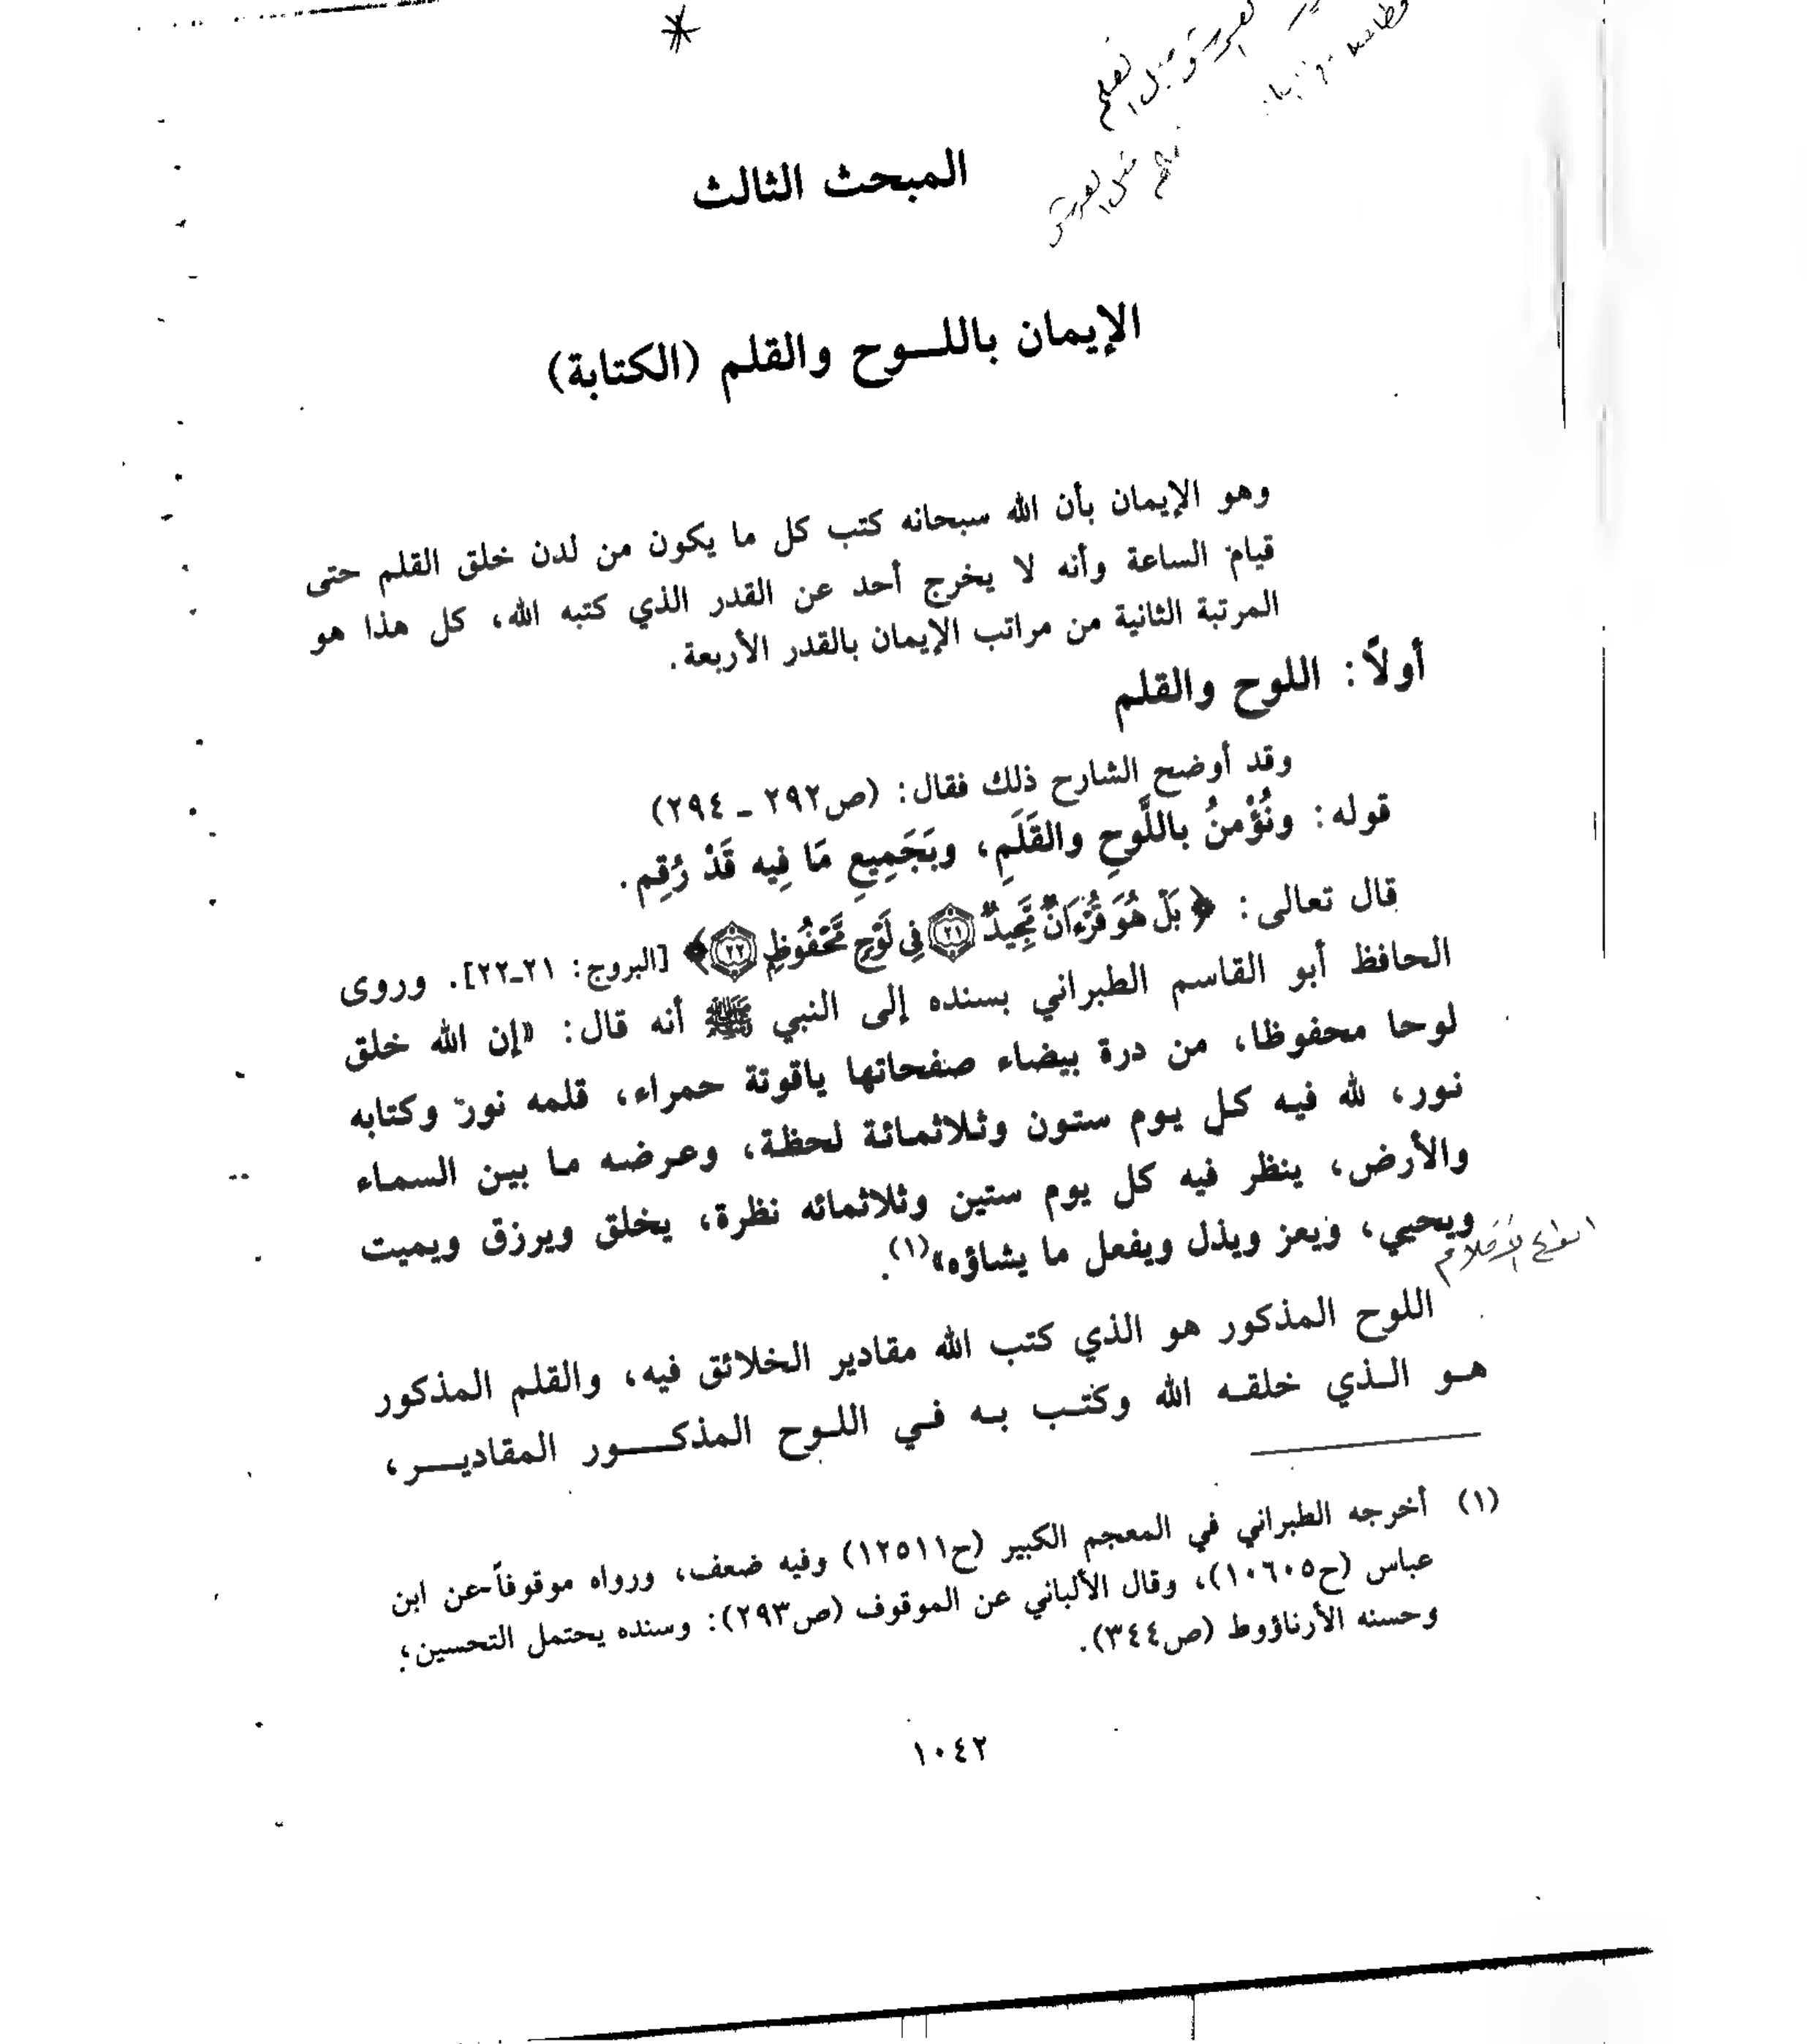 المبحث الثالث
الإيمان باللوح والقلم (الكتابة)
وهو الإيمان بأن الله سبحانه كتب كل ما يكون من لدن خلق القلم حتى
قيام الساعة وأنه لا يخرج أحد عن القدر الذي كتبه الله، كل هذا هو
المرتبة الثانية من مراتب الإيمان بالقدر الأربعة.
أولاً: اللوح والقلم
وقد أوضح الشارح ذلك فقال: (ص٢٩٢ ـ ٢٩٤)
قوله: ونُؤْمنُ باللَّوحِ والقَلَمِ، وبَجَمِيعِ مَا فِيه قَدْ رُقِم.
قال تعالى: ﴿بَلْ هُوَ قُرْءَانٌ مَّجِيدٌ ٢١ فِي لَوْحٍ مَّحْفُوظٍ ٢٢﴾ [البروج: ٢١ـ٢٢]. وروى
الحافظ أبو القاسم الطبراني بسنده إلى النبي ﷺ أنه قال: «إن الله خلق
لوحا محفوظا، من درة بيضاء صفحاتها ياقوتة حمراء، قلمه نور وكتابه
نور، لله فيه كل يوم ستون وثلاثمائة لحظة، وعرضه ما بين السماء
والأرض، ينظر فيه كل يوم ستين وثلاثمائه نظرة، يخلق ويرزق ويميت
ويحيي، ويعز ويذل ويفعل ما يشاؤه»(١).
اللوح المذكور هو الذي كتب الله مقادير الخلائق فيه، والقلم المذكور
هو الذي خلقه الله وكتب به في اللوح المذكور المقادير،
(١) أخرجه الطبراني في المعجم الكبير (ح١٢٥١١) وفيه ضعف، ورواه موقوفاً عن ابن
عباس (ح١٠٦٠٥)، وقال الألباني عن الموقوف (ص٢٩٣): وسنده يحتمل التحسين؛
وحسنه الأرناؤوط (ص٣٤٤).
١٠٤٢